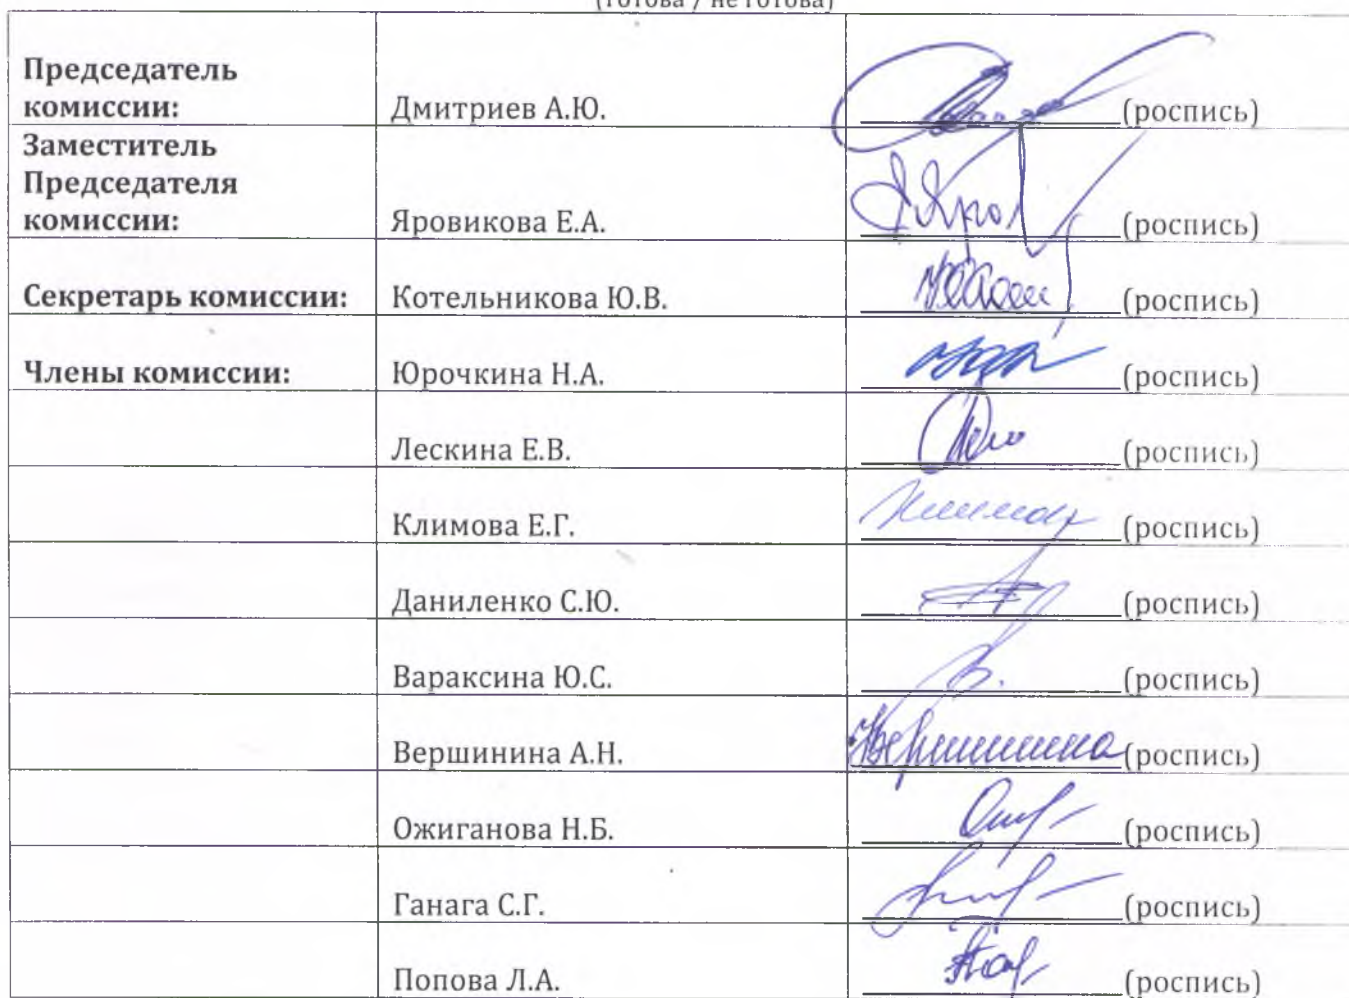 (готова / не готова)
Председатель
комиссии: Дмитриев А.Ю. (роспись)
Заместитель
Председателя
комиссии: Яровикова Е.А. (роспись)
Секретарь комиссии: Котельникова Ю.В. (роспись)
Члены комиссии: Юрочкина Н.А. (роспись)
Лескина Е.В. (роспись)
Климова Е.Г. (роспись)
Даниленко С.Ю. (роспись)
Вараксина Ю.С. (роспись)
Вершинина А.Н. Вершинина (роспись)
Ожиганова Н.Б. (роспись)
Ганага С.Г. (роспись)
Попова Л.А. (роспись)